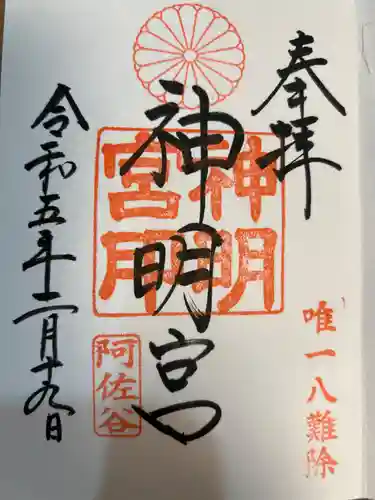 奉拝
唯一八難除
神明宮
神明宮印
阿佐谷
令和五年二月十九日